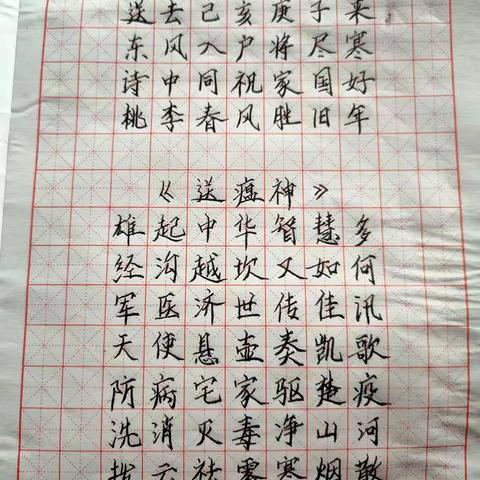 送去己亥庚子来
东风入户将尽寒
诗中同祝家国好
桃李春风胜旧年
《送瘟神》
雄起中华智慧多
经沟越坎又如何
军医济世传佳讯
天使悬壶奏凯歌
防病宅家驱楚疫
洗消灭毒净山河
拨云祛雾寒烟散